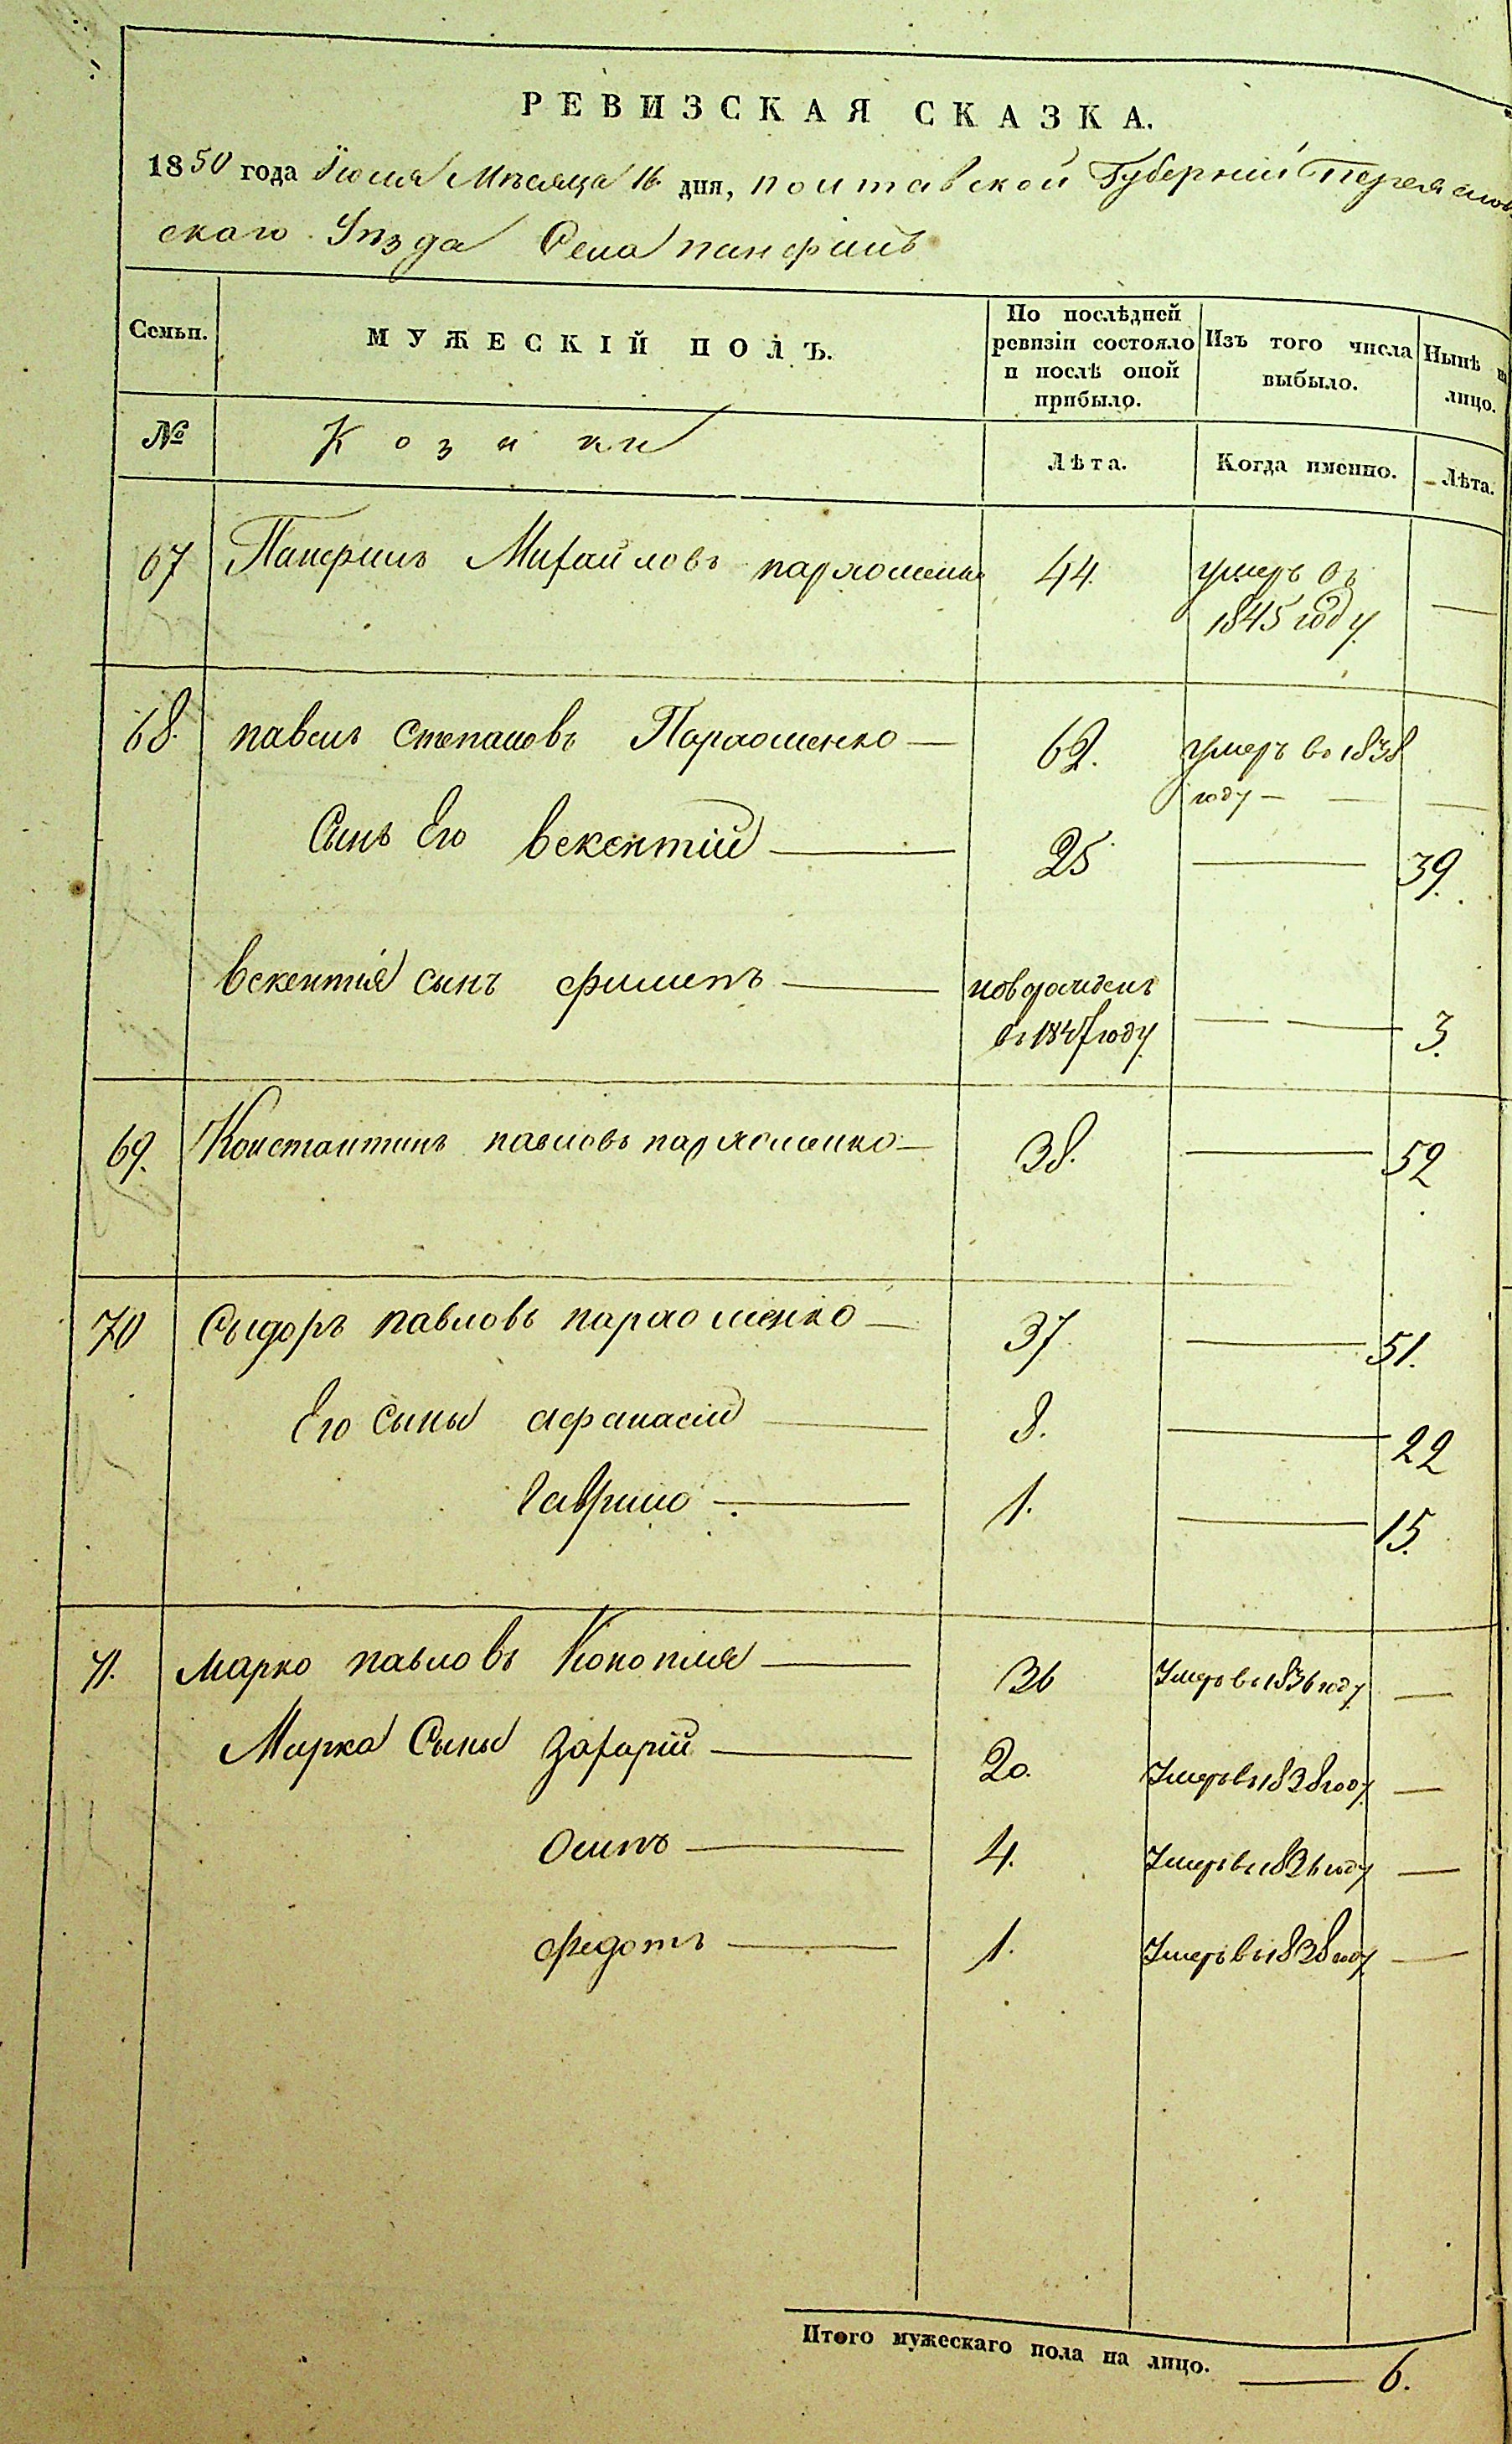 РЕВИЗСКАЯ СКАЗКА.
1850 года Іюля Мѣсяца 16 дня, полтавской Губерніи Переяслов
скаго Уѣзда Села панфилъ
Семьи. МУЖЕСКІЙ ПОЛЪ. По послѣдней ревизіи состояло и послѣ оной прибыло. Изъ того числа выбыло. Нынѣ на лицо.
№ Козаки Лѣта. Когда именно. Лѣта.
67 Панфилъ Михайловъ пархоменко 44. умеръ въ
1845 году —
68. павелъ степановъ Пархоменко — 62. умеръ въ 1838
году — — —
Сынъ Его векентій — 25 — 39.
векентія сынъ филипъ — новорожденъ
въ 1847 году — — 3.
69. Константинъ павловъ пархоменко — 38. — 52
70 Сыдоръ павловъ пархоменко — 37 — 51.
Его сыны афанасій — 8. — 22
гаврило — 1. — 15.
71. марко павловъ Конопля — 36 Умеръ въ 1836 году —
Марка Сыны Захарій — 20. Умеръ въ 1838 году —
Осипъ — 4. Умеръ въ 1836 году —
федотъ — 1. Умеръ въ 1838 году —
Итого мужескаго пола на лицо. — 6.